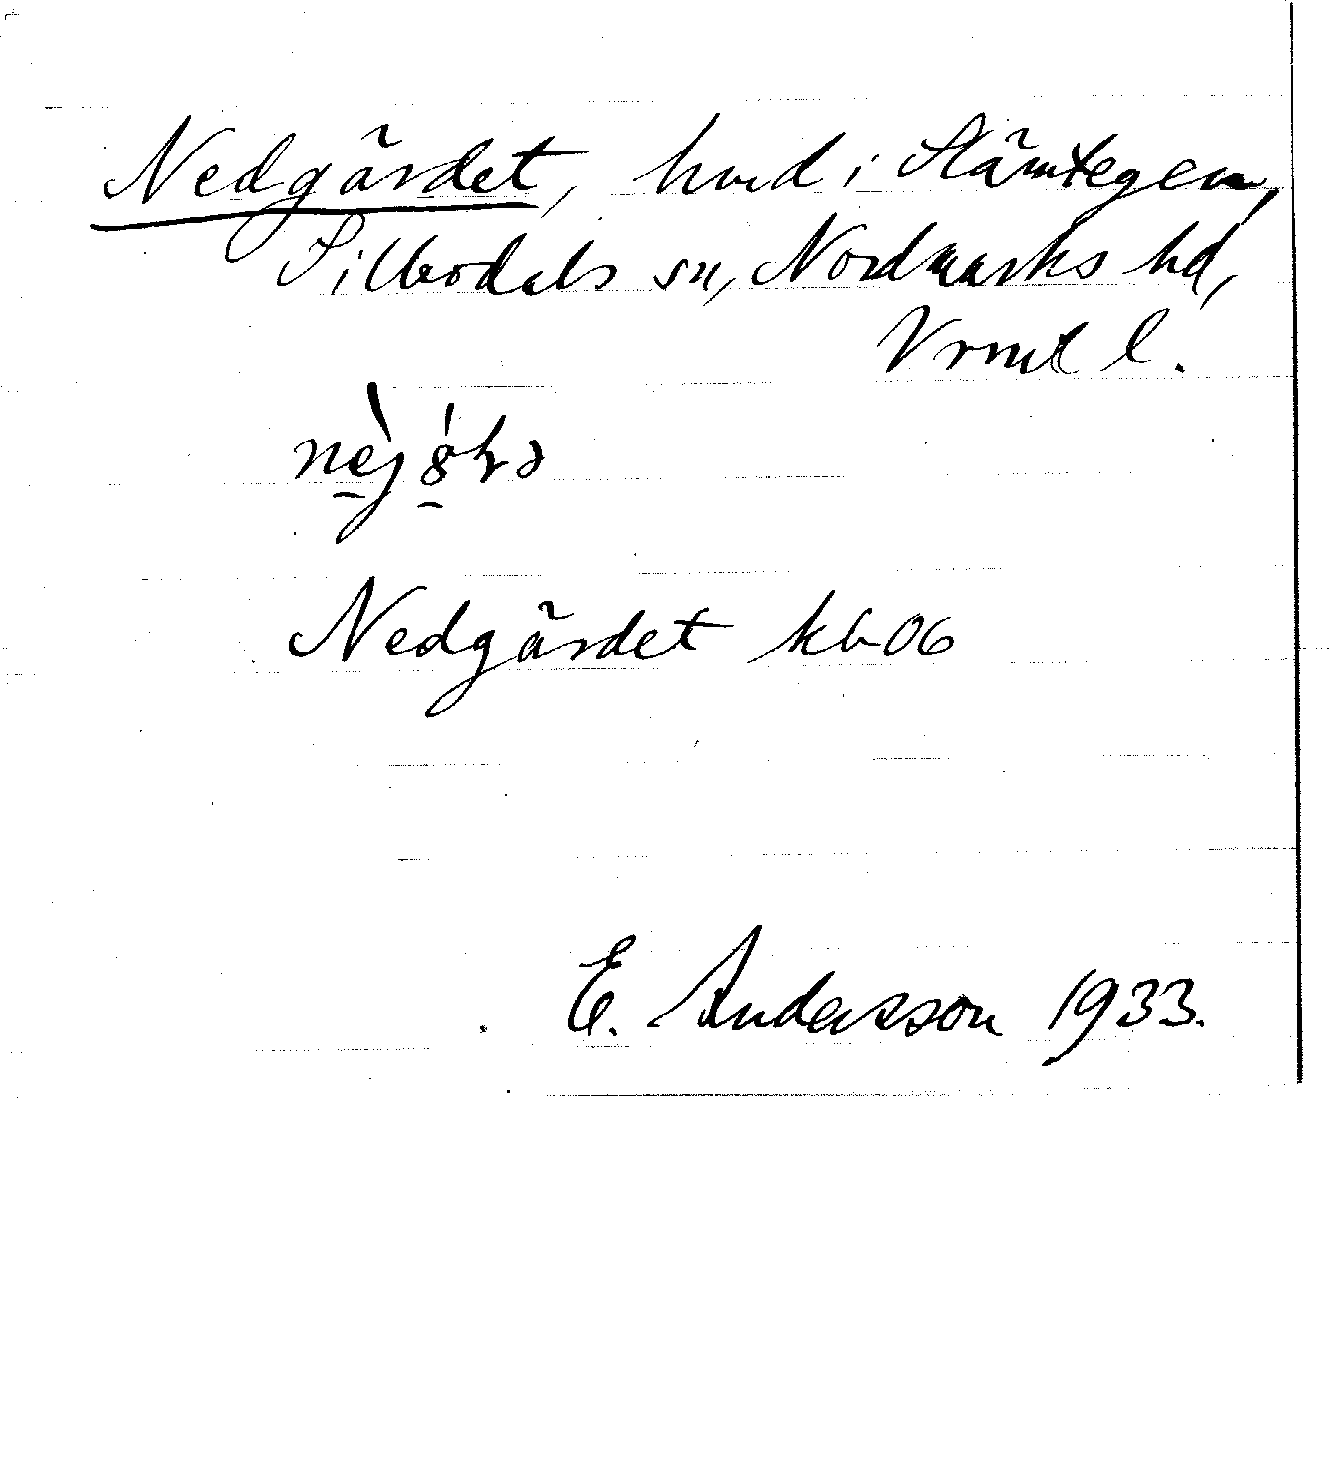 Nedgärdet, hmd i Stämtegen,
Silbodals sn, Nordmarks hd,
Vrml l.
Nedgärdet kb 06
E. Andersson 1933.